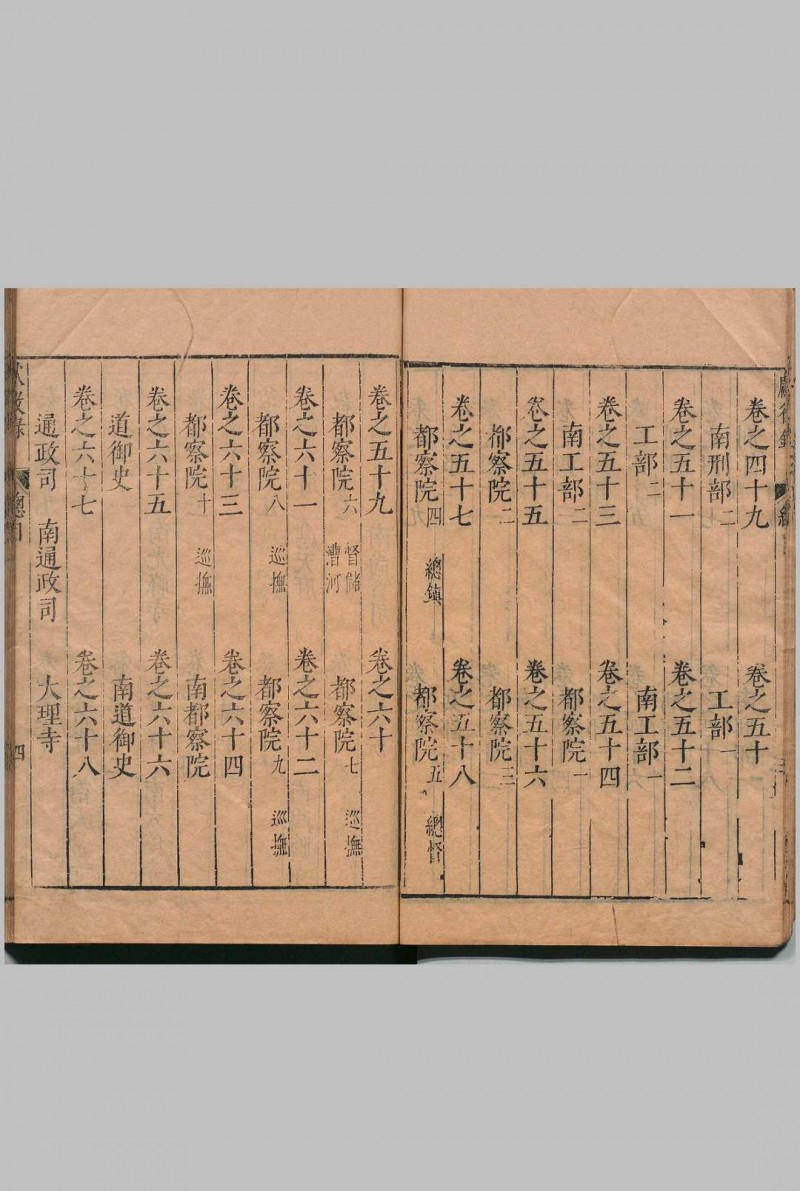 卷之四十九 卷之五十
南刑部二 工部一
卷之五十一 卷之五十二
工部二 南工部一
卷之五十三 卷之五十四
南工部二 都察院一
卷之五十五 卷之五十六
都察院二 都察院三
卷之五十七 卷之五十八
都察院四 總鎮 都察院五 總督
卷之五十九 卷之六十
都察院六 督儲漕河 都察院七 巡撫
卷之六十一 卷之六十二
都察院八 巡撫 都察院九 巡撫
卷之六十三 卷之六十四
都察院十 巡撫 南都察院
卷之六十五 卷之六十六
道御史 南道御史
卷之六十七 卷之六十八
通政司 南通政司 大理寺
四